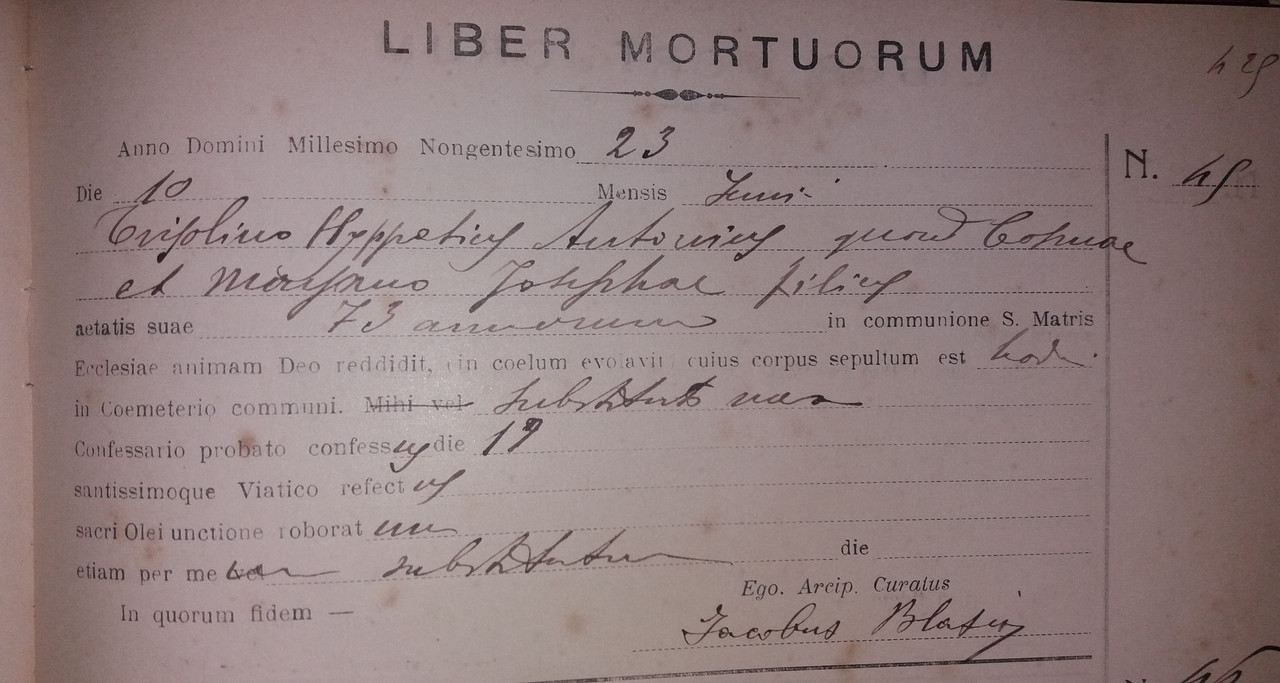 LIBER MORTUORUM
429
Anno Domini Millesimo Nongentesimo 23
N. 45
Die 10 Mensis Junii
Trisolino Hyppetius Antonius quond Cosmae
et Josephae filius
aetatis suae 73 annorum in communione S. Matris
Ecclesiae animam Deo reddidit, (in coelum evolavit) cuius corpus sepultum est
in Coemeterio communi. Mihi vel substituto meo
Confessario probato confessus die 19
santissimoque Viatico refectus
sacri Olei unctione roborat
etiam per me die
In quorum fidem —
Ego. Arcip. Curatus
Jacobus Blasi